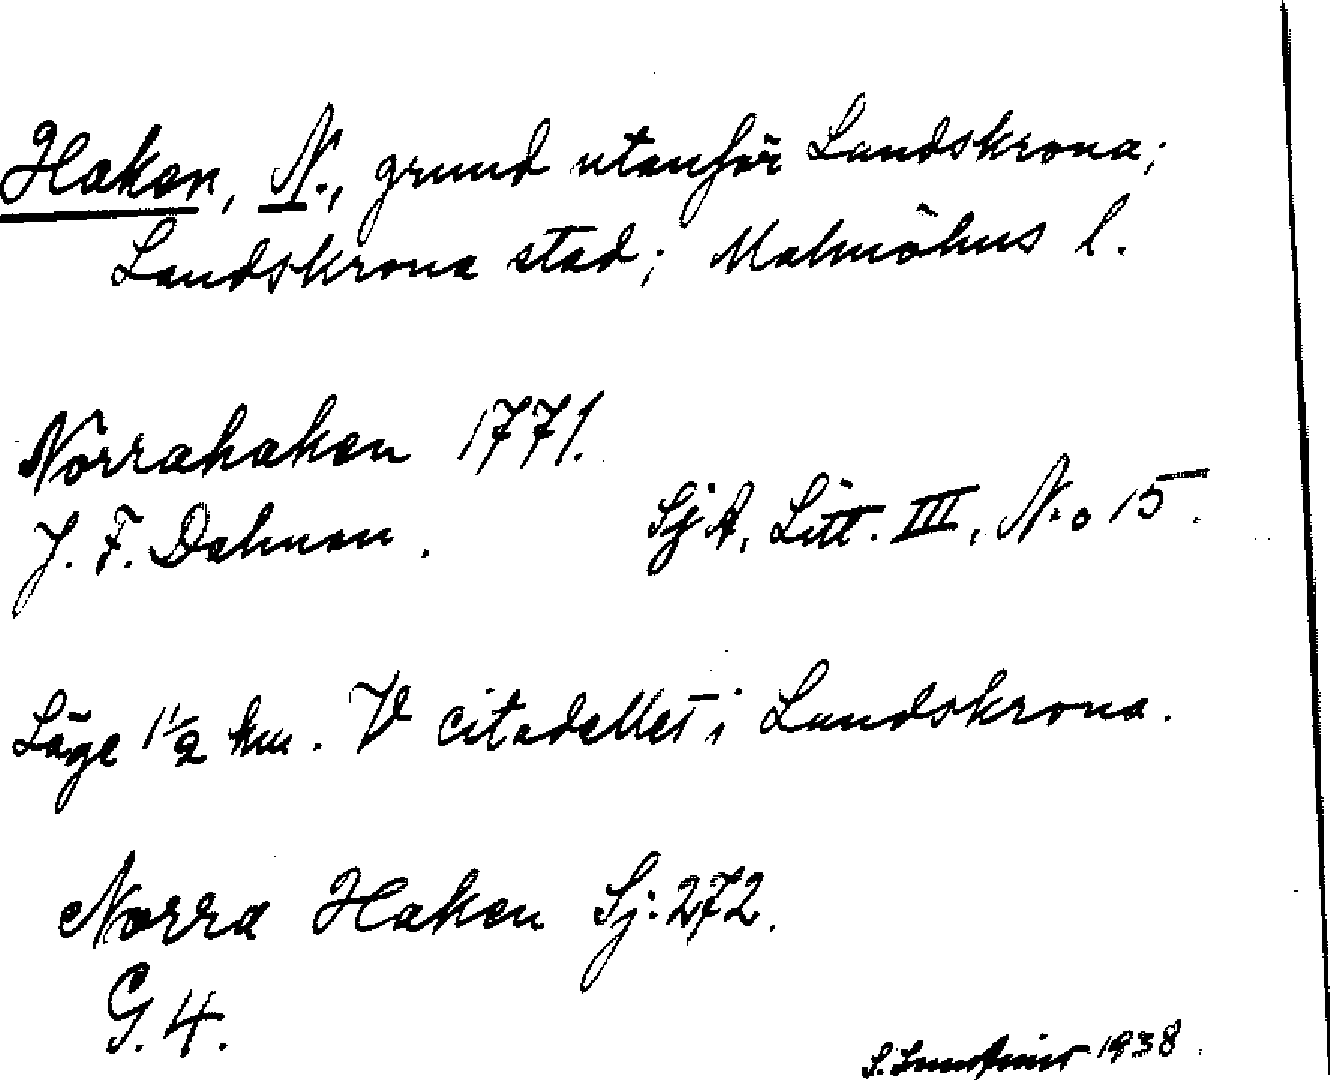 Haken, N., grund utanför Landskrona;
Landskrona stad; Malmöhus l.
Norrahaken 1771.
J. F. Dahman.
Sj A, Litt. III, No 15.
Läge 1 1/2 km. V citadellet i Landskrona.
Norra Haken Sj: 272.
G. 4.
S. 1938